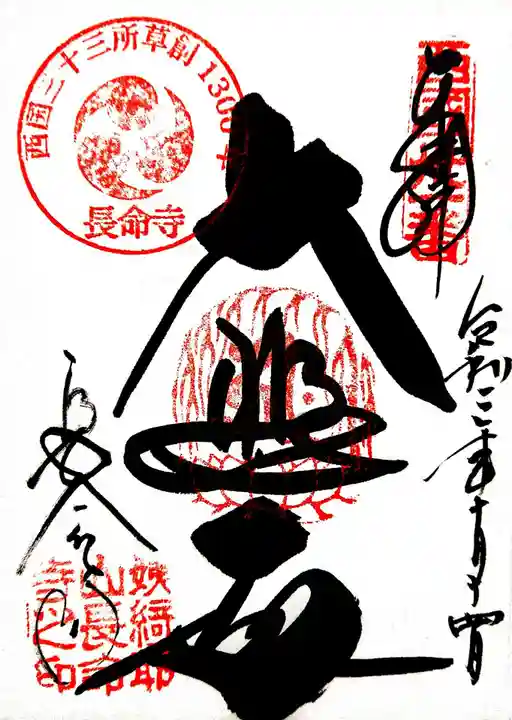 奉拝
令和二年十月十四日
大悲殿
長命寺
西国三十三所草創1300年
長命寺
姨綺耶
山長命
寺之印